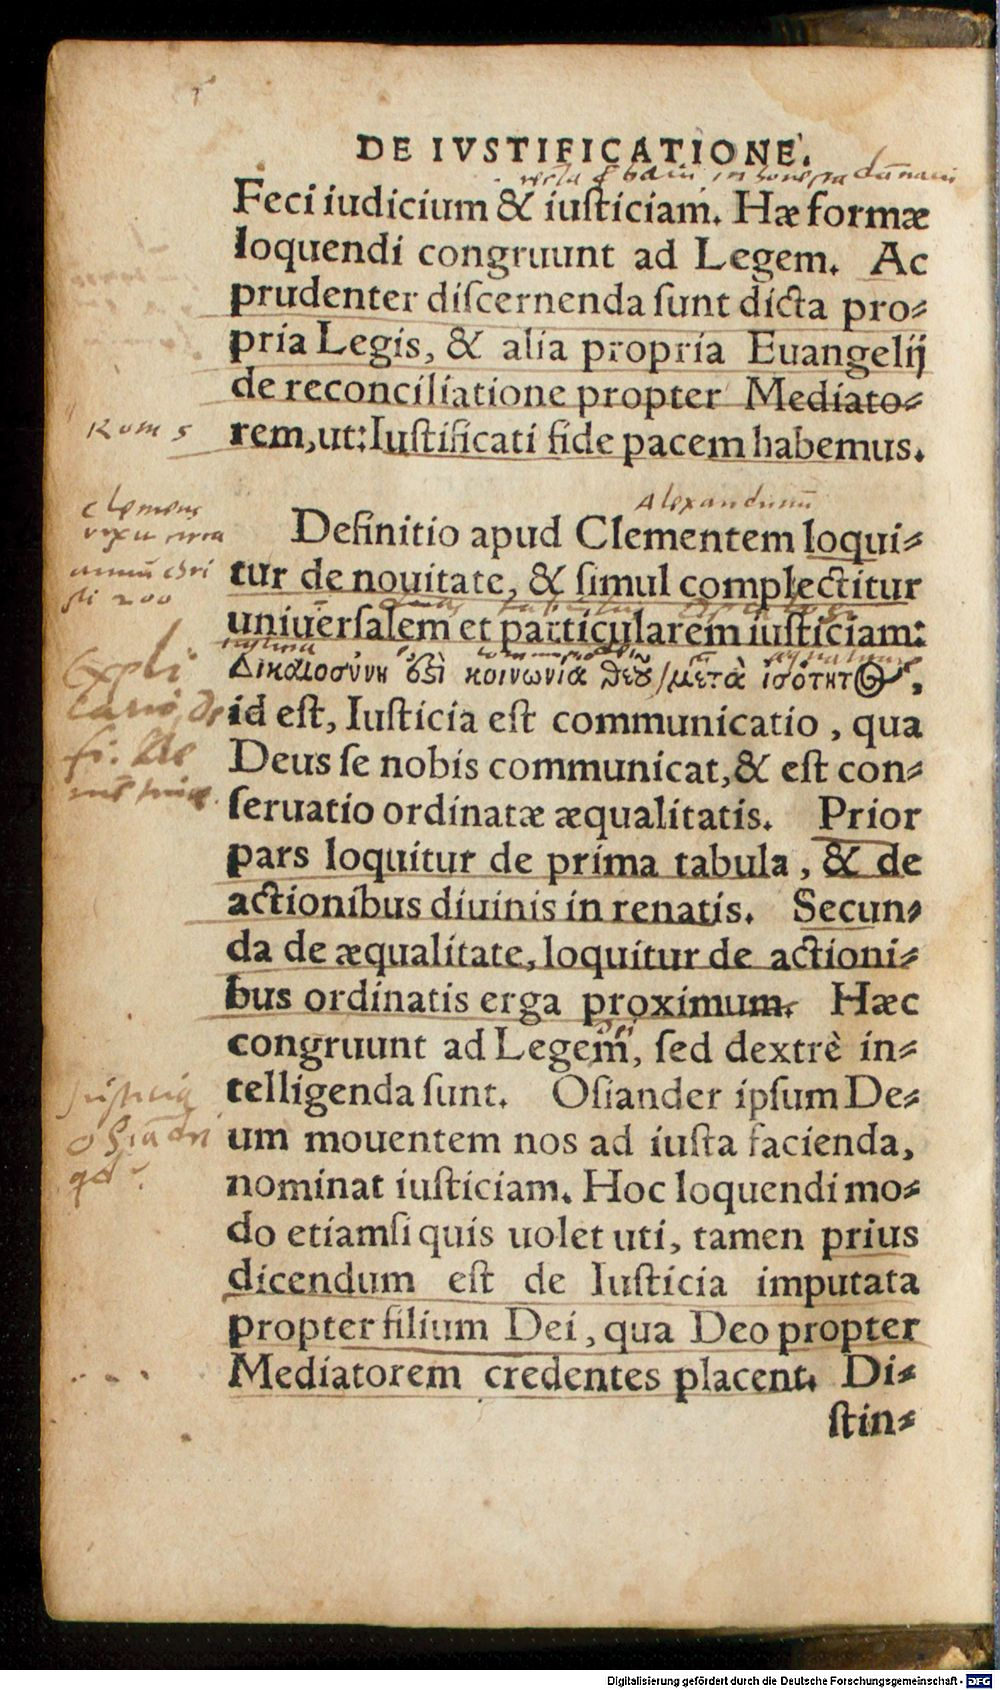 DE IVSTIFICATIONE.
Feci iudicium & iusticiam. Hæ formæ
loquendi congruunt ad Legem. Ac
prudenter discernenda sunt dicta pro-
pria Legis, & alia propria Euangelij
de reconciliatione propter Mediato-
Rom 5
rem, ut: Iustificati fide pacem habemus.
Alexandrinū
Clemens
Definitio apud Clementem loqui-
annū Chri
sti 200
tur de nouitate, & simul complectitur
uniuersalem et particularem iusticiam:
Δικαιοσύνη ἐστὶ κοινωνία θεοῦ μετὰ ἰσότητος,
id est, Iusticia est communicatio, qua
Deus se nobis communicat, & est con-
seruatio ordinatæ æqualitatis. Prior
pars loquitur de prima tabula, & de
actionibus diuinis in renatis. Secun-
da de æqualitate, loquitur de actioni-
bus ordinatis erga proximum. Hæc
congruunt ad Legem, sed dextrè in-
Justicia
Osiādri
telligenda sunt. Osiander ipsum De-
um mouentem nos ad iusta facienda,
nominat iusticiam. Hoc loquendi mo-
do etiamsi quis uolet uti, tamen prius
dicendum est de Iusticia imputata
propter filium Dei, qua Deo propter
Mediatorem credentes placent. Di-
stin-
Digitalisierung gefördert durch die Deutsche Forschungsgemeinschaft - DFG